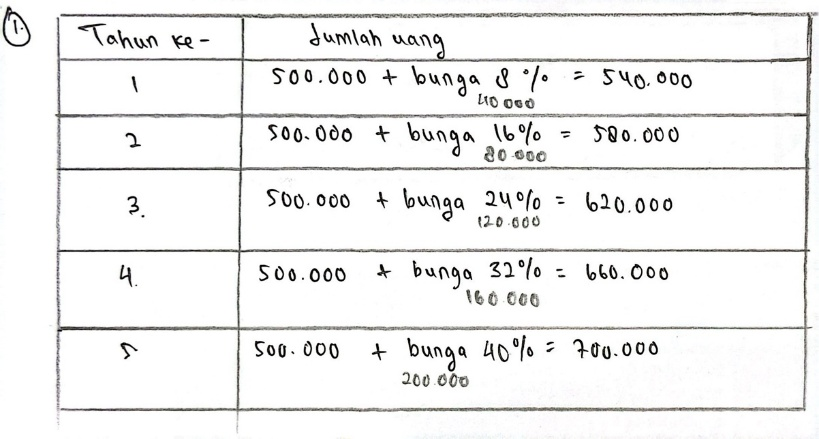 1.
Tahun ke- Jumlah uang
1 500.000 + bunga 8% = 540.000
40 000
2 500.000 + bunga 16% = 580.000
80.000
3. 500.000 + bunga 24% = 620.000
120.000
4. 500.000 + bunga 32% = 660.000
160.000
5 500.000 + bunga 40% = 700.000
200.000